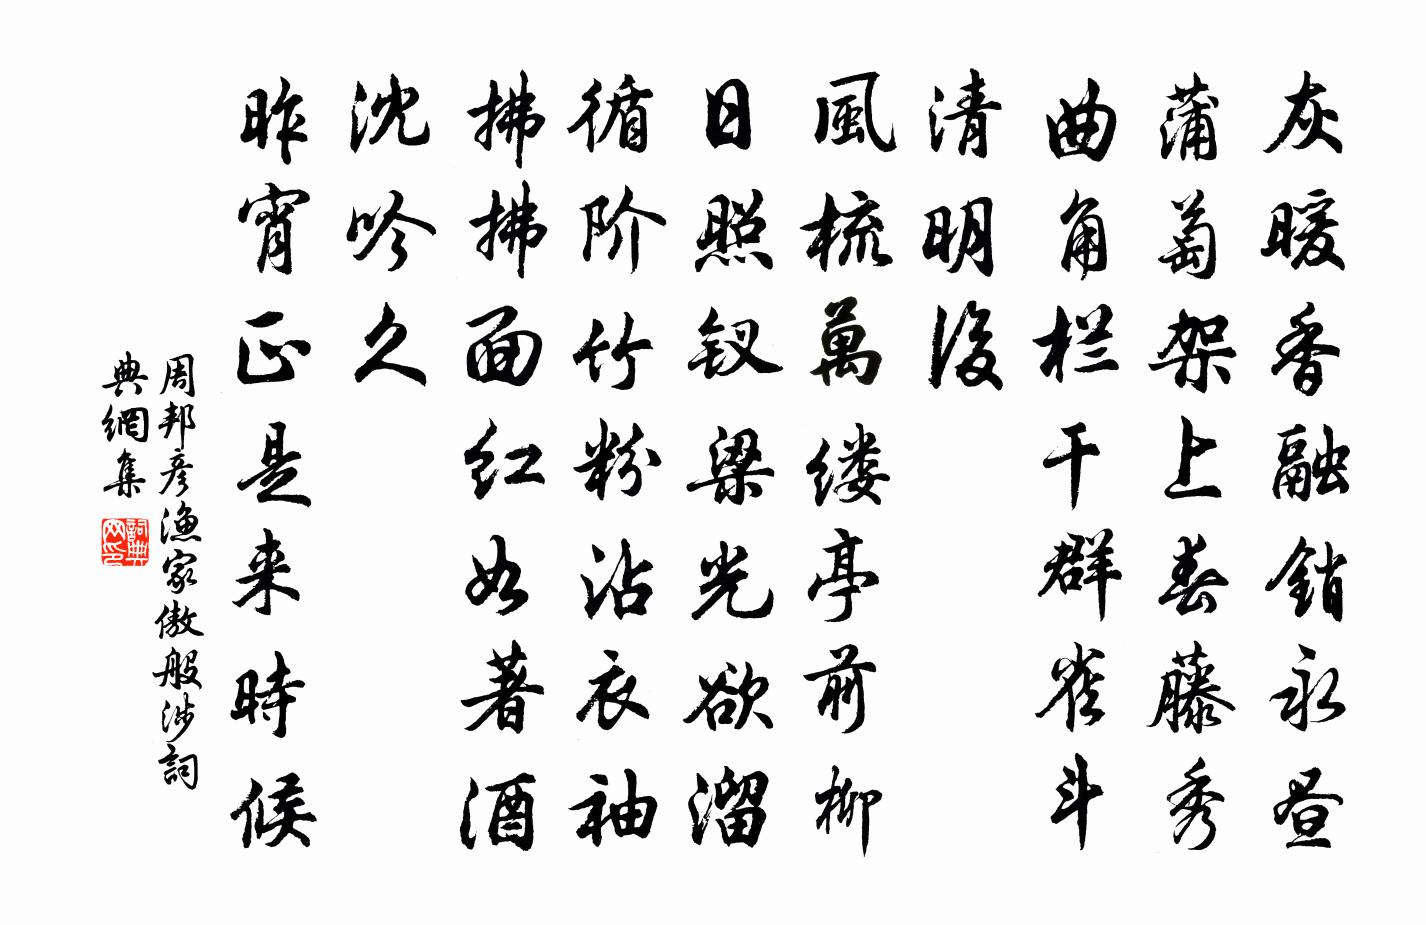 灰暖香融銷永昼
蒲萄架上春藤秀
曲角栏干群雀斗
清明後
風梳萬缕亭前柳
日照钗梁光欲溜
循阶竹粉沾衣袖
拂拂面红如著酒
沈吟久
昨宵正是来時候
周邦彦漁家傲般涉詞
典網集
詞典網印